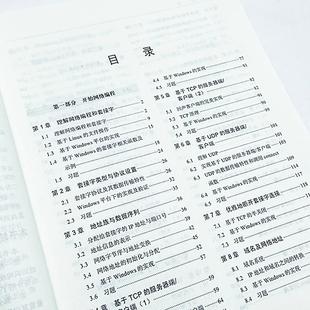 目 录
第一部分 开始网络编程
第 1 章 理解网络编程和套接字
1.1 理解网络编程和套接字
1.2 基于Linux的文件操作
1.3 基于Windows平台的实现
1.4 基于Windows的套接字相关函数及
示例
1.5 习题
第 2 章 套接字类型与协议设置
2.1 套接字协议及其数据传输特性
2.2 Windows平台下的实现及验证
2.3 习题
第 3 章 地址族与数据序列
3.1 分配给套接字的IP地址与端口号
3.2 地址信息的表示
3.3 网络字节序与地址变换
3.4 网络地址的初始化与分配
3.5 基于Windows的实现
3.6 习题
第 4 章 基于TCP的服务器端/
客户端（1）
4.4 基于Windows的实现
4.5 习题
第 5 章 基于TCP的服务器端/
客户端（2）
5.1 回声客户端的完美实现
5.2 TCP原理
5.3 基于Windows的实现
5.4 习题
第 6 章 基于UDP的服务器端/
客户端
6.1 理解UDP
6.2 实现基于UDP的服务器端/客户端
6.3 UDP的数据传输特性和调用connect
函数
6.4 基于Windows的实现
6.5 习题
第 7 章 优雅地断开套接字连接
7.1 基于TCP的半关闭
7.2 基于Windows的实现
7.3 习题
第 8 章 域名及网络地址
8.1 域名系统
8.2 IP地址和域名之间的转换
8.3 基于Windows的实现
8.4 习题